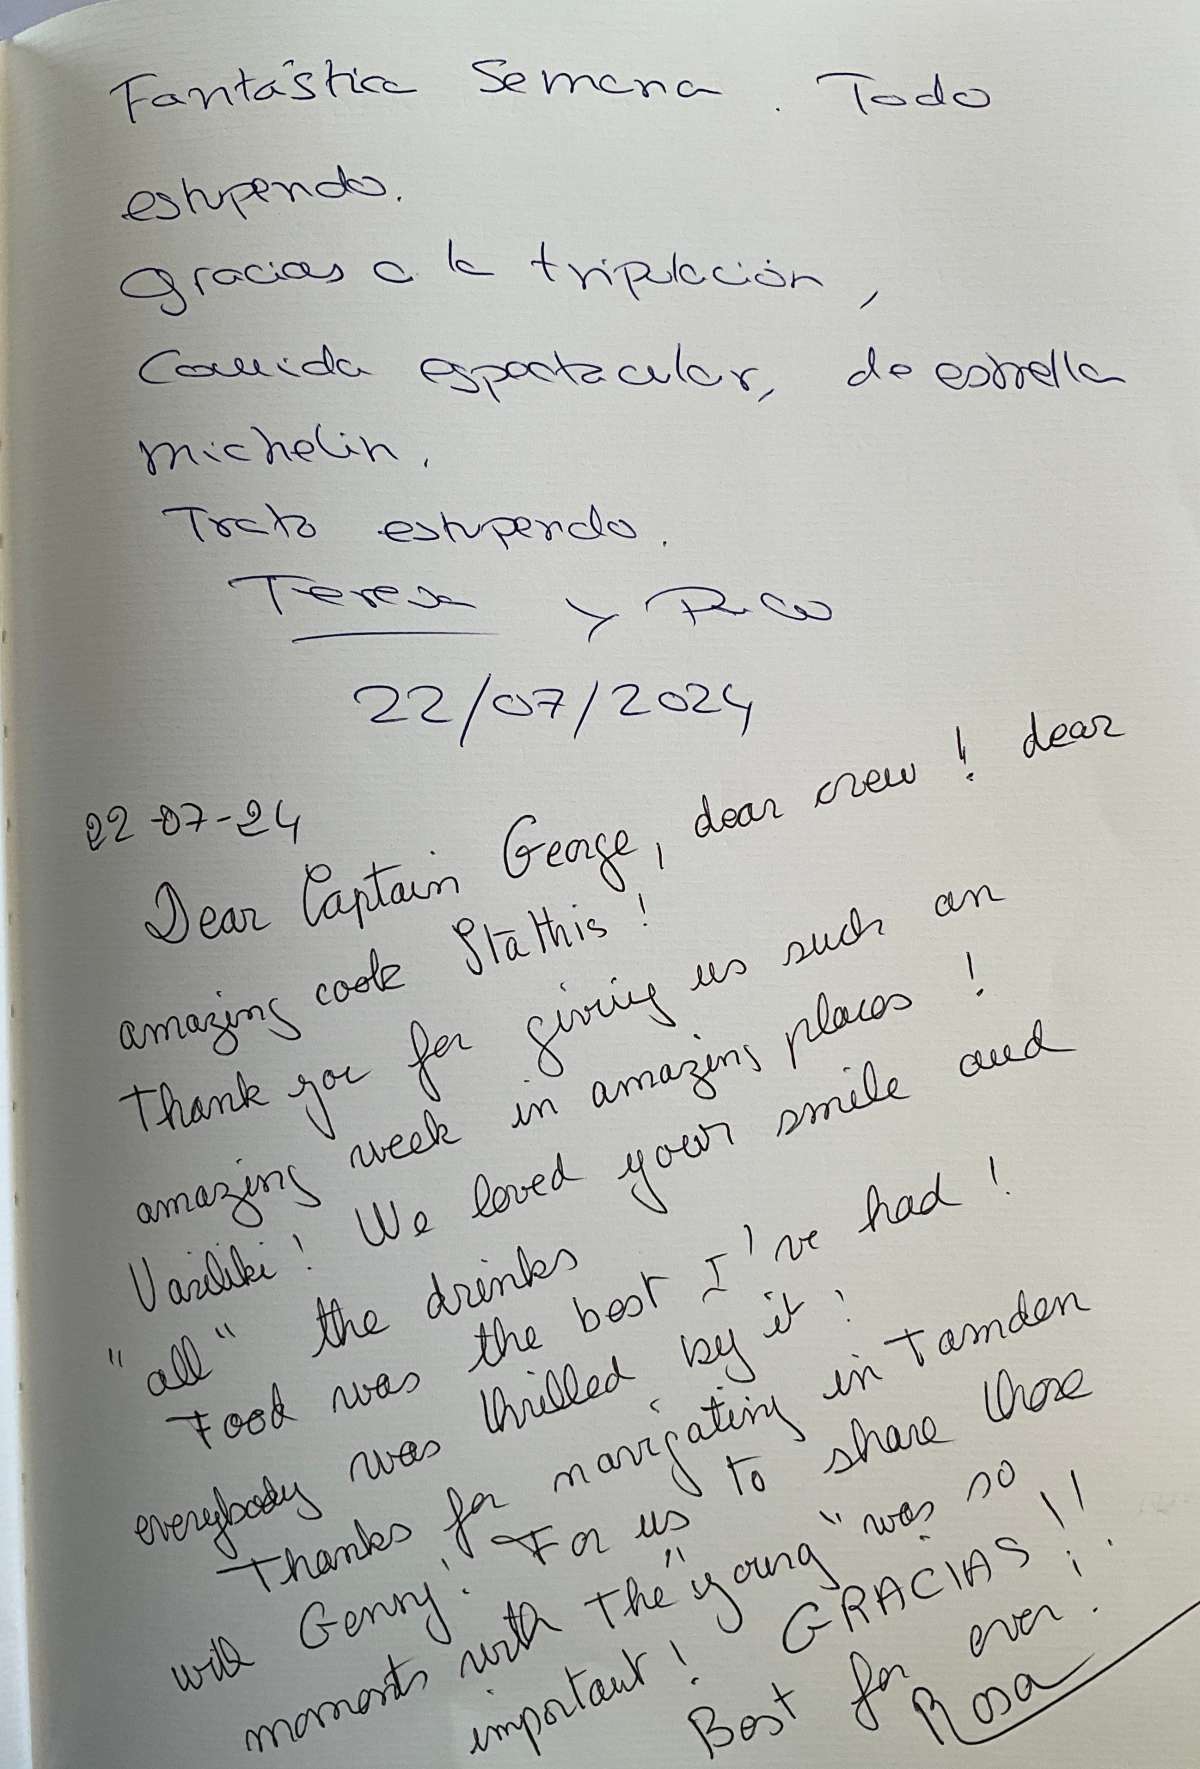 Fantástica Semana. Todo
estupendo.
gracias a la tripulación,
Comida espectacular, de estrella
michelin.
Trato estupendo.
Teresa y
22/07/2024
22-07-24
Dear Captain George, dear crew! dear
amazing cook Stathis!
Thank you for giving us such an
amazing week in amazing places!
Vasiliki! We loved your smile and
"all" the drinks
Food was the best I've had!
everybody was thrilled by it!
Thanks for navigating in Tamden
with Genny! For us to share those
moments with the "young" was so
important! GRACIAS!!
Best for ever!
Rosa